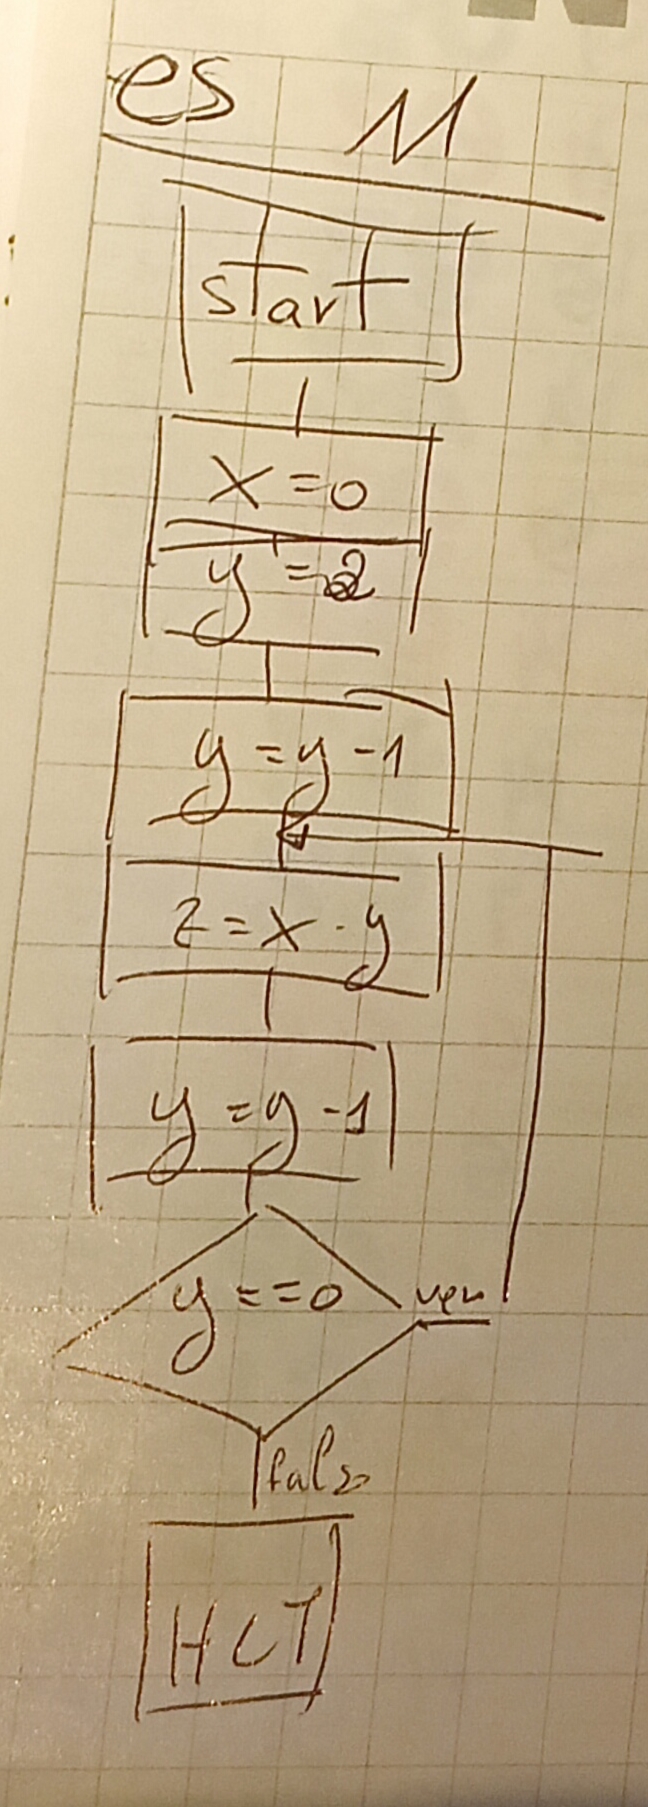 es M
start
x=0
y=2
y=y-1
z=x·y
y=y-1
y==0
ver
fals
HLT